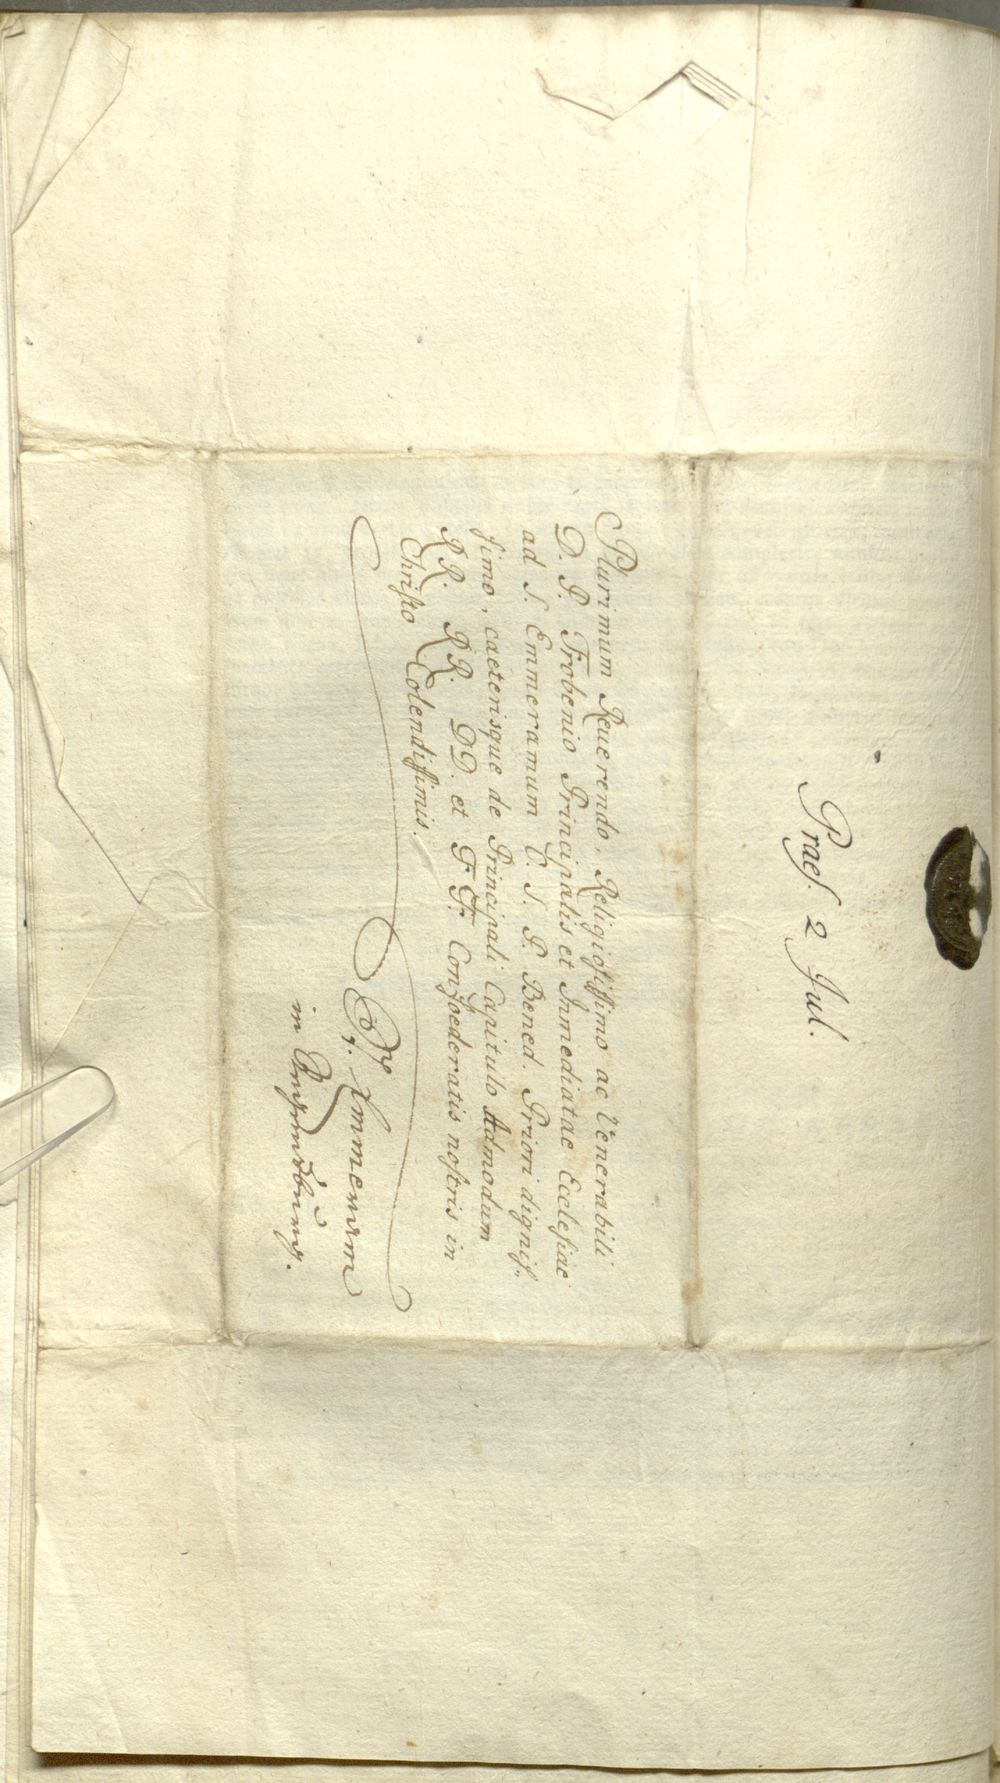 Praes. 2 Jul.
Plurimum Reuerendo, Religiosissimo ac Venerabili
D. P. Frobenio Principalis et Inmediatae Ecclesiae
ad S. Emmeramum O. S. P. Bened. Priori dignis-
simo, caeterisque de Principali Capitulo Admodum
RR. RR. DD. et FF. Confoederatis nostris in
Christo Colendissimis.
St. Emmeram
in Regensburg.